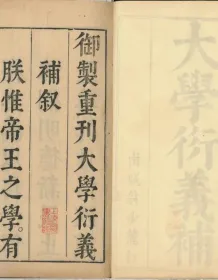 御製重刊大學衍義
補叙
朕惟帝王之學有
大學衍義補